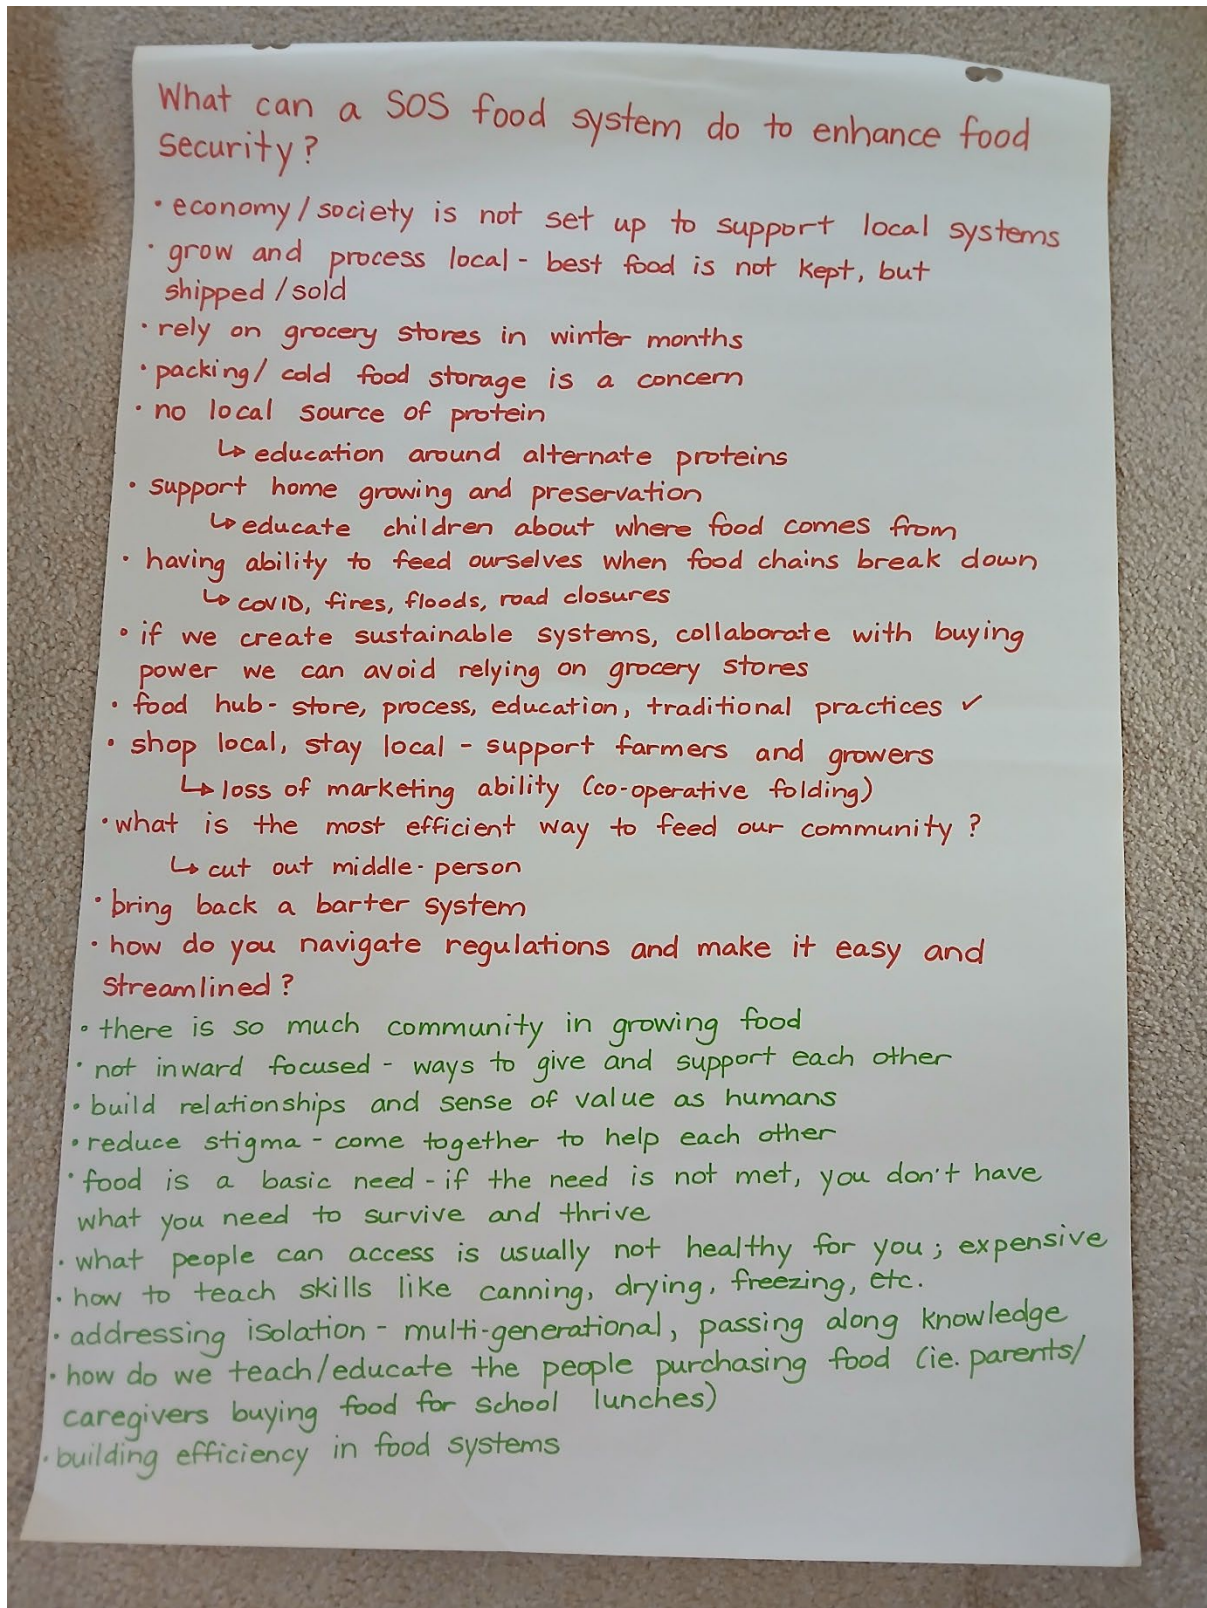 What can a SOS food system do to enhance food
security?
• economy/society is not set up to support local systems
• grow and process local - best food is not kept, but
shipped/sold
• rely on grocery stores in winter months
• packing/ cold food storage is a concern
• no local source of protein
↳ education around alternate proteins
• support home growing and preservation
↳ educate children about where food comes from
• having ability to feed ourselves when food chains break down
↳ COVID, fires, floods, road closures
• if we create sustainable systems, collaborate with buying
power we can avoid relying on grocery stores
• food hub - store, process, education, traditional practices ✓
• shop local, stay local - support farmers and growers
↳ loss of marketing ability (co-operative folding)
• what is the most efficient way to feed our community?
↳ cut out middle-person
• bring back a barter system
• how do you navigate regulations and make it easy and
streamlined?
• there is so much community in growing food
• not inward focused - ways to give and support each other
• build relationships and sense of value as humans
• reduce stigma - come together to help each other
• food is a basic need - if the need is not met, you don't have
what you need to survive and thrive
• what people can access is usually not healthy for you; expensive
• how to teach skills like canning, drying, freezing, etc.
• addressing isolation - multi-generational, passing along knowledge
• how do we teach/educate the people purchasing food (ie. parents/
caregivers buying food for school lunches)
• building efficiency in food systems